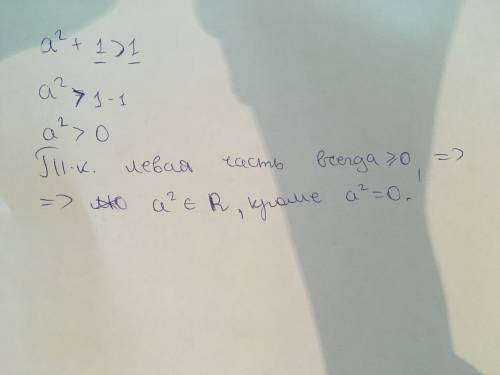 a² + 1 > 1
a² > 1-1
a² > 0
Т.к. левая часть всегда ≥ 0, =>
=> a² ∈ R, кроме a² = 0.